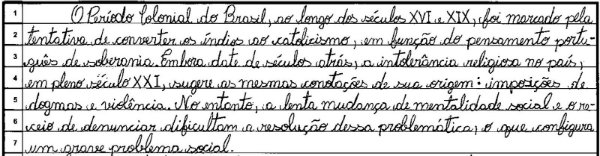 1 O Período Colonial do Brasil, ao longo dos séculos XVI e XIX, foi marcado pela
2 tentativa de converter os índios ao catolicismo, em função do pensamento portu-
3 guês de soberania. Embora date de séculos atrás, a intolerância religiosa no país,
4 em pleno século XXI, sugere as mesmas conotações de sua origem: imposições de
5 dogmas e violência. No entanto, a lenta mudança de mentalidade social e o re-
6 ceio de denunciar dificultam a resolução dessa problemática, o que configura
7 um grave problema social.